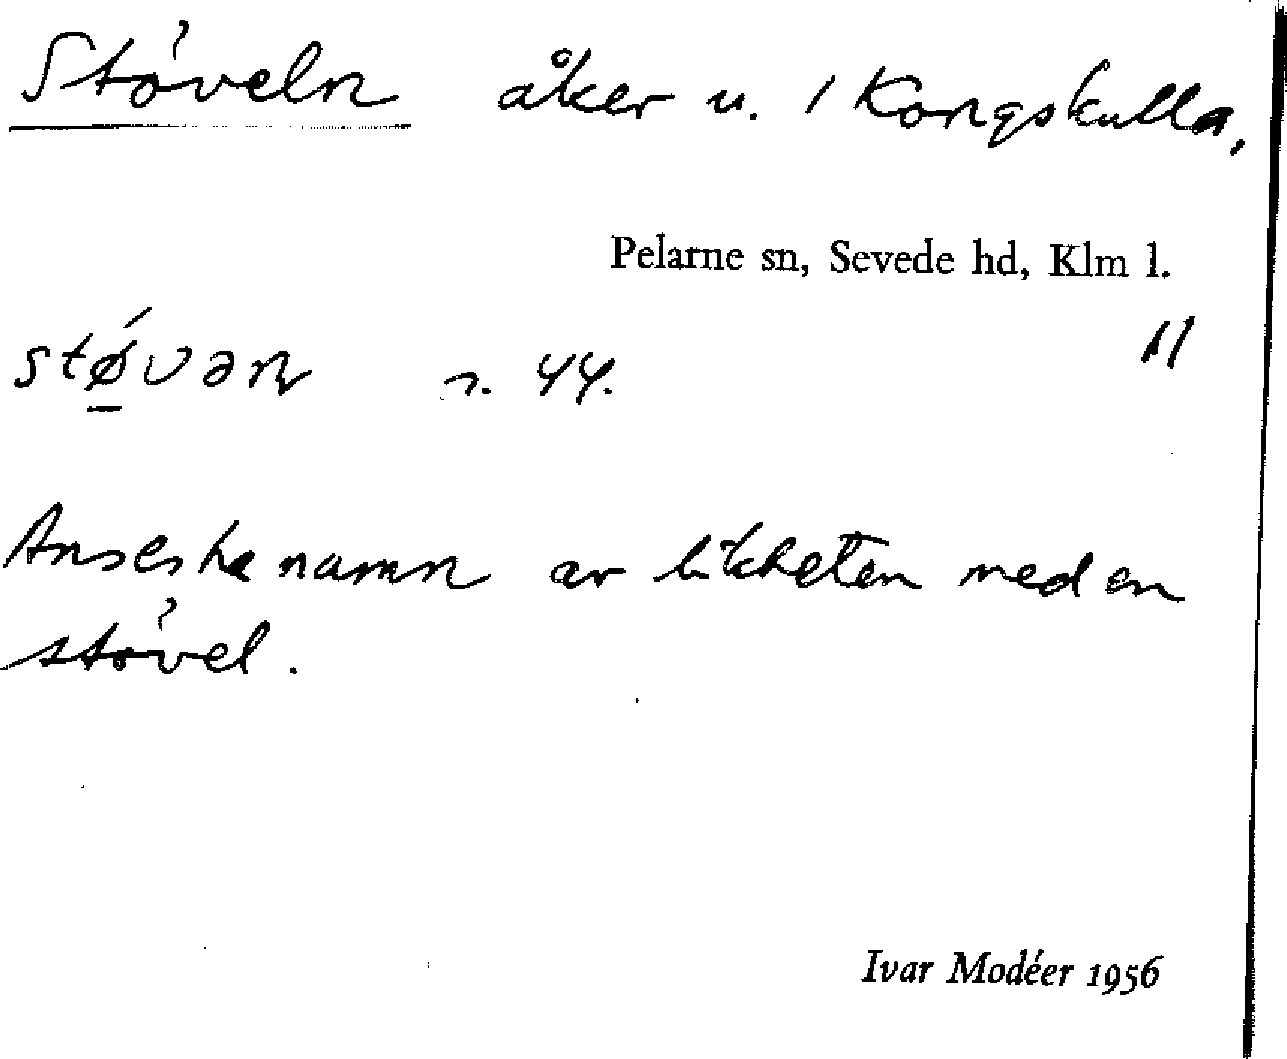 Stöveln åker u. 1 Kongskulla,
Pelarne sn, Sevede hd, Klm l.
11
støvən n. 44.
Anses ha namn av likheten med en
stövel.
Ivar Modéer 1956